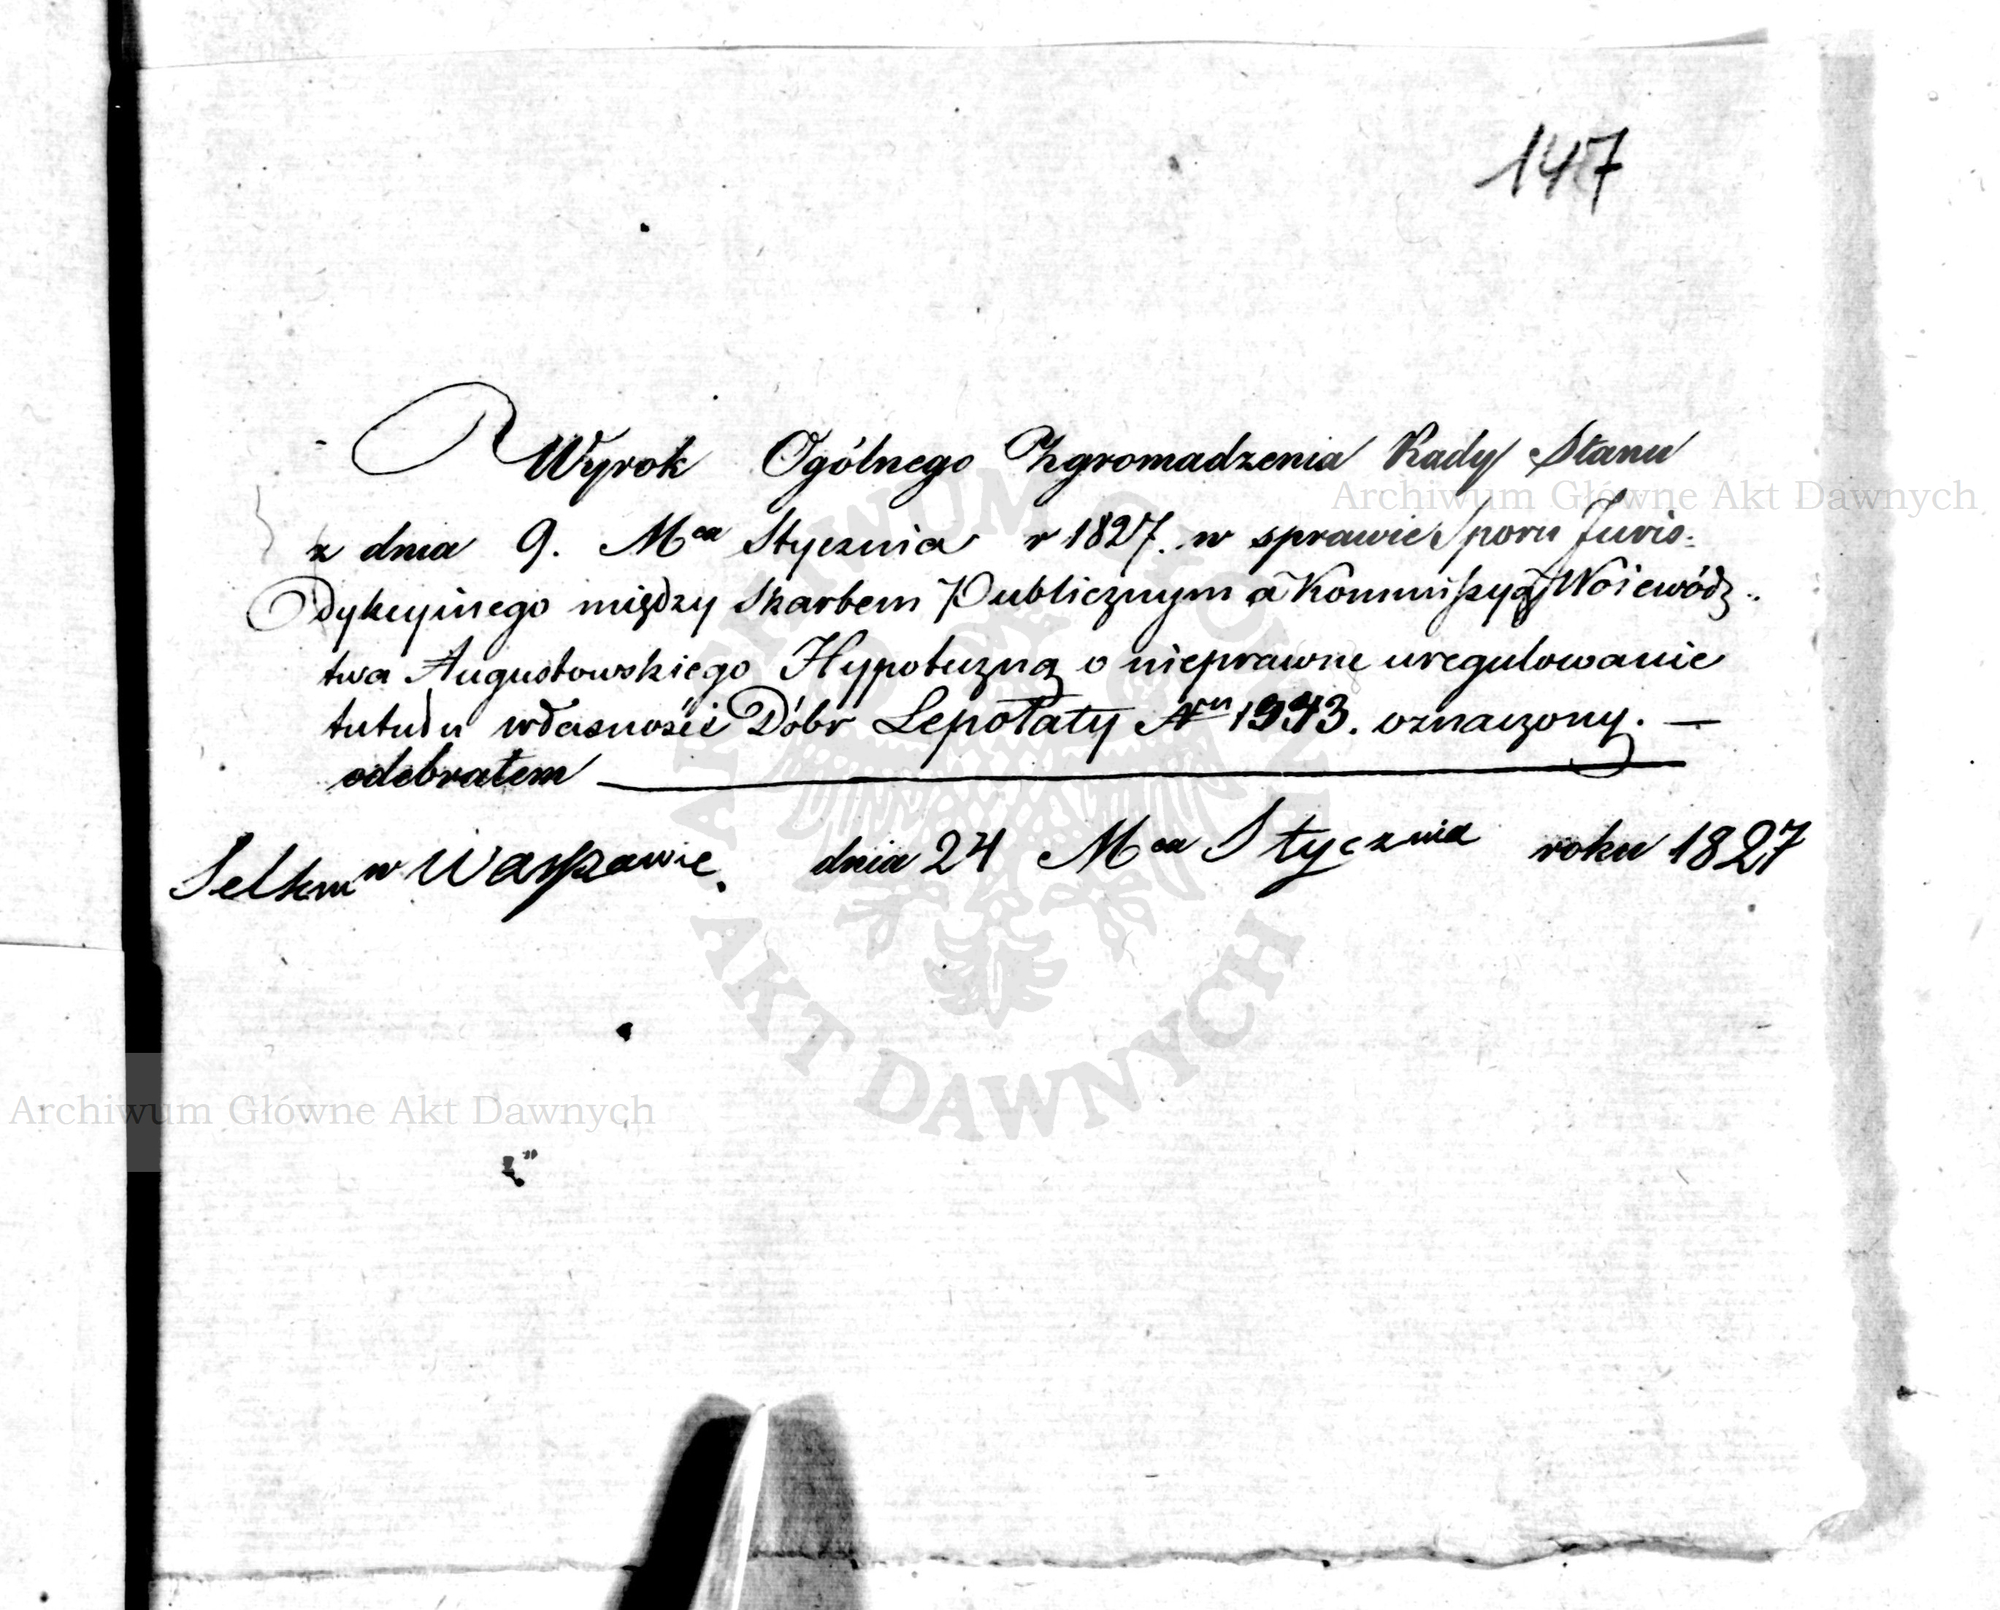 147
Wyrok Ogólnego Zgromadzenia Rady Stanu
Archiwum Główne Akt Dawnych
z dnia 9. Mca Stycznia r 1827. w sprawie Sporu Juris=
dykcyinego między Skarbem Publicznym a Kommissyą Woiewódz=
twa Augustowskiego Hypoteczną o nieprawne uregulowanie
tutułu własności Dóbr Łepołaty Nru 1993. oznaczony. —
odebrałem
w Warszawie. dnia 24 Mca Stycznia roku 1827
Archiwum Główne Akt Dawnych
ARCHIWUM GŁÓWNE
AKT DAWNYCH